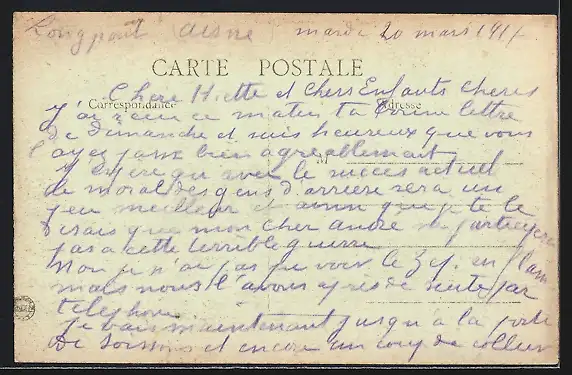 Longpont (Aisne) mardi 20 mars 1917
CARTE POSTALE
Correspondance Adresse
Chère Hette et Chers Enfants Chéris
J'ai reçu ce matin ta bonne lettre
de Dimanche et suis heureux que vous
l'ayez passé bien agréablement
J'espère qu'avec le succès actuel
le moral des gens d'arrière sera un
peu meilleur et ainsi que je te le
disais que mon cher andré ne participera
pas a cette terrible guerre
Non je n'ai pas pu voir le Zep. en flam
mais nous l'avons appris de suite par
téléphone
Je vais maintenant jusqu'à la porte
de Soissons et encore un coup de collier